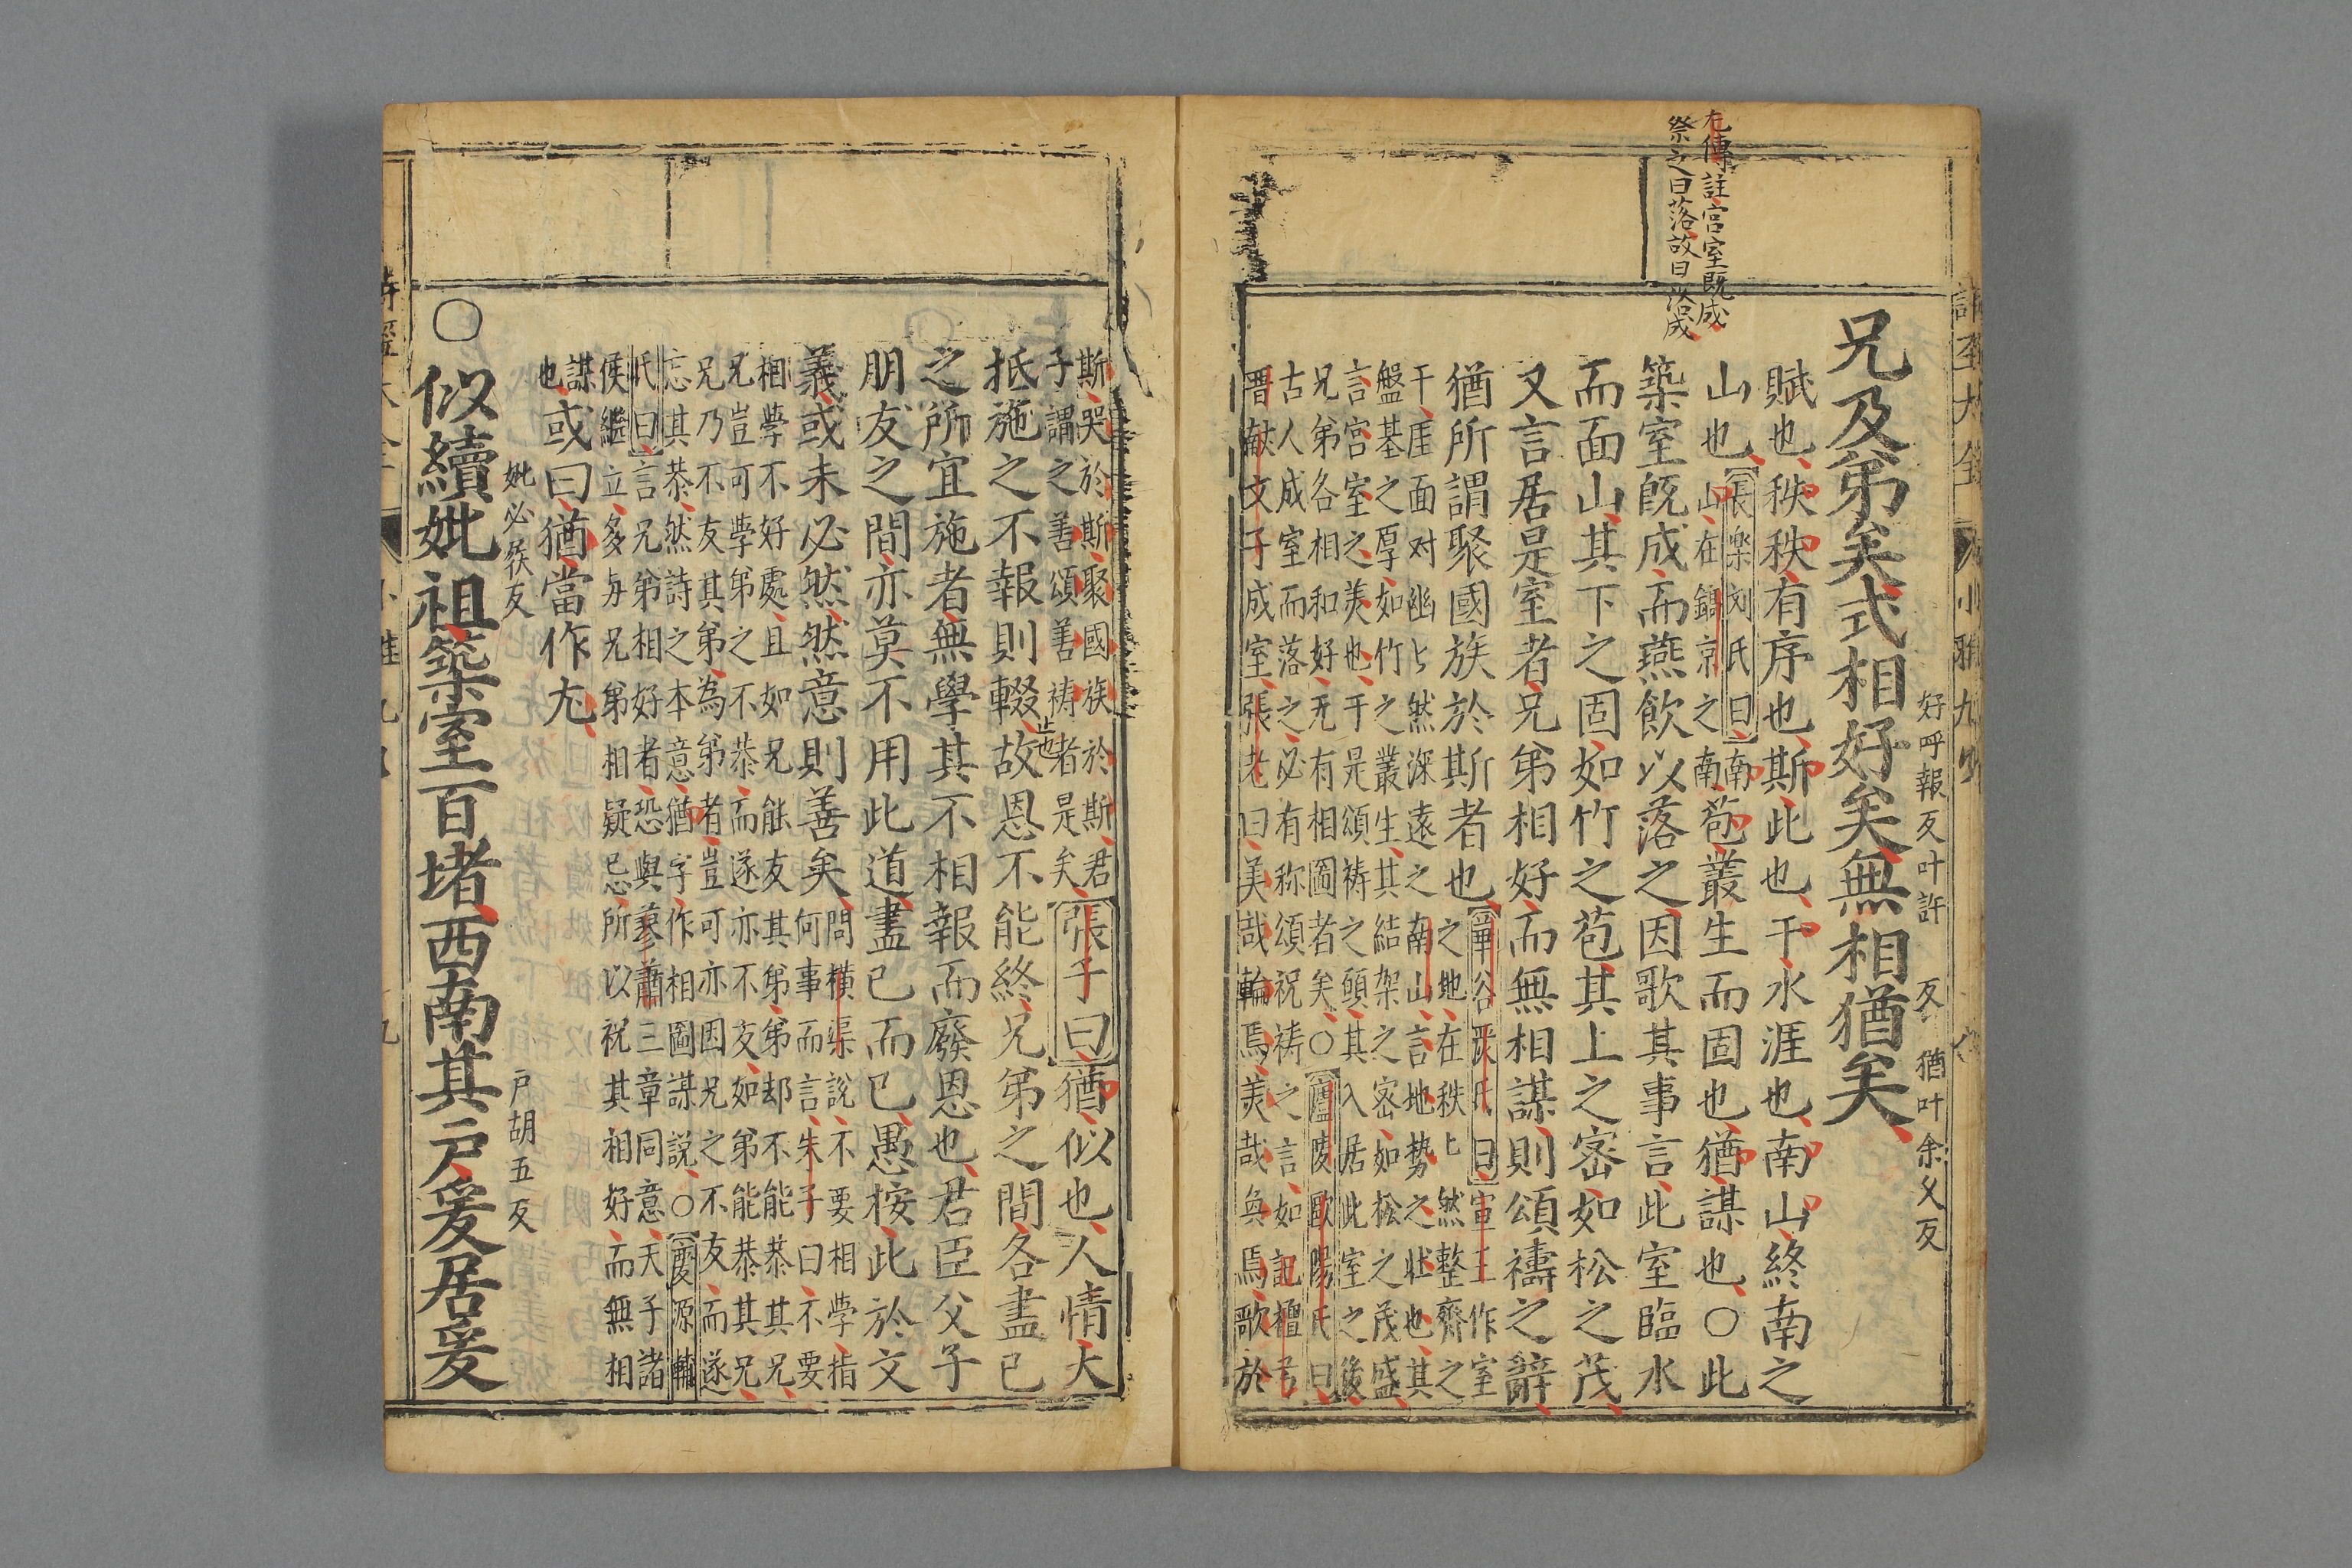 左傳註宮室既成
祭之曰落故曰落成
詩經大全
小雅九
兄及弟矣式相好矣無相猶矣
好呼報反叶許
反
猶叶余父反
賦也秩秩有序也斯此也干水涯也南山終南之
山也
張樂刘氏曰南
山在鎬京之南
苞叢生而固也猶謀也○此
築室既成而燕飲以落之因歌其事言此室臨水
而面山其下之固如竹之苞其上之密如松之茂
又言居是室者兄弟相好而無相謀則頌禱之辭
猶所謂聚國族於斯者也
華谷嚴氏曰宣王作室
之地在秩〻然整齊之
干厓面对幽〻然深遠之南山言地势之壯也其
盤基之厚如竹之叢生其結架之密如松之茂盛
言宮室之美也于是頌祷之頭其入居此室之後
兄弟各相和好无有相圖者矣○廬陵歐陽氏曰
古人成室而落之必有称頌祝祷之言如記檀弓
晋献文子成室張老曰美哉輪焉美哉奐焉歌於
斯哭於斯聚國族於斯君
子謂之善頌善祷者是矣
張子曰猶似也人情大
抵施之不報則輟故恩不能終兄弟之間各盡己
止也
之所宜施者無學其不相報而廢恩也君臣父子
朋友之間亦莫不用此道盡己而已愚桉此於文
義或未必然然意則善矣
問横渠說不要相學指
何事而言朱子曰不要
相學不好處且如兄能友其弟弟却不能恭其兄
兄豈可學弟之不恭而遂亦不友如弟能恭其兄
兄乃不友其弟為弟者豈可亦因兄之不友而遂
忘其恭然詩之本意猶字作相圖謀說○慶源輔
氏曰言兄弟相好者恐與蓼蕭三章同意天子諸
侯繼立多与兄弟相疑忌所以祝其相好而無相
謀
也
或曰猶當作尢
妣必履反
戸胡五反
○似續妣祖築室百堵西南其戸爰居爰